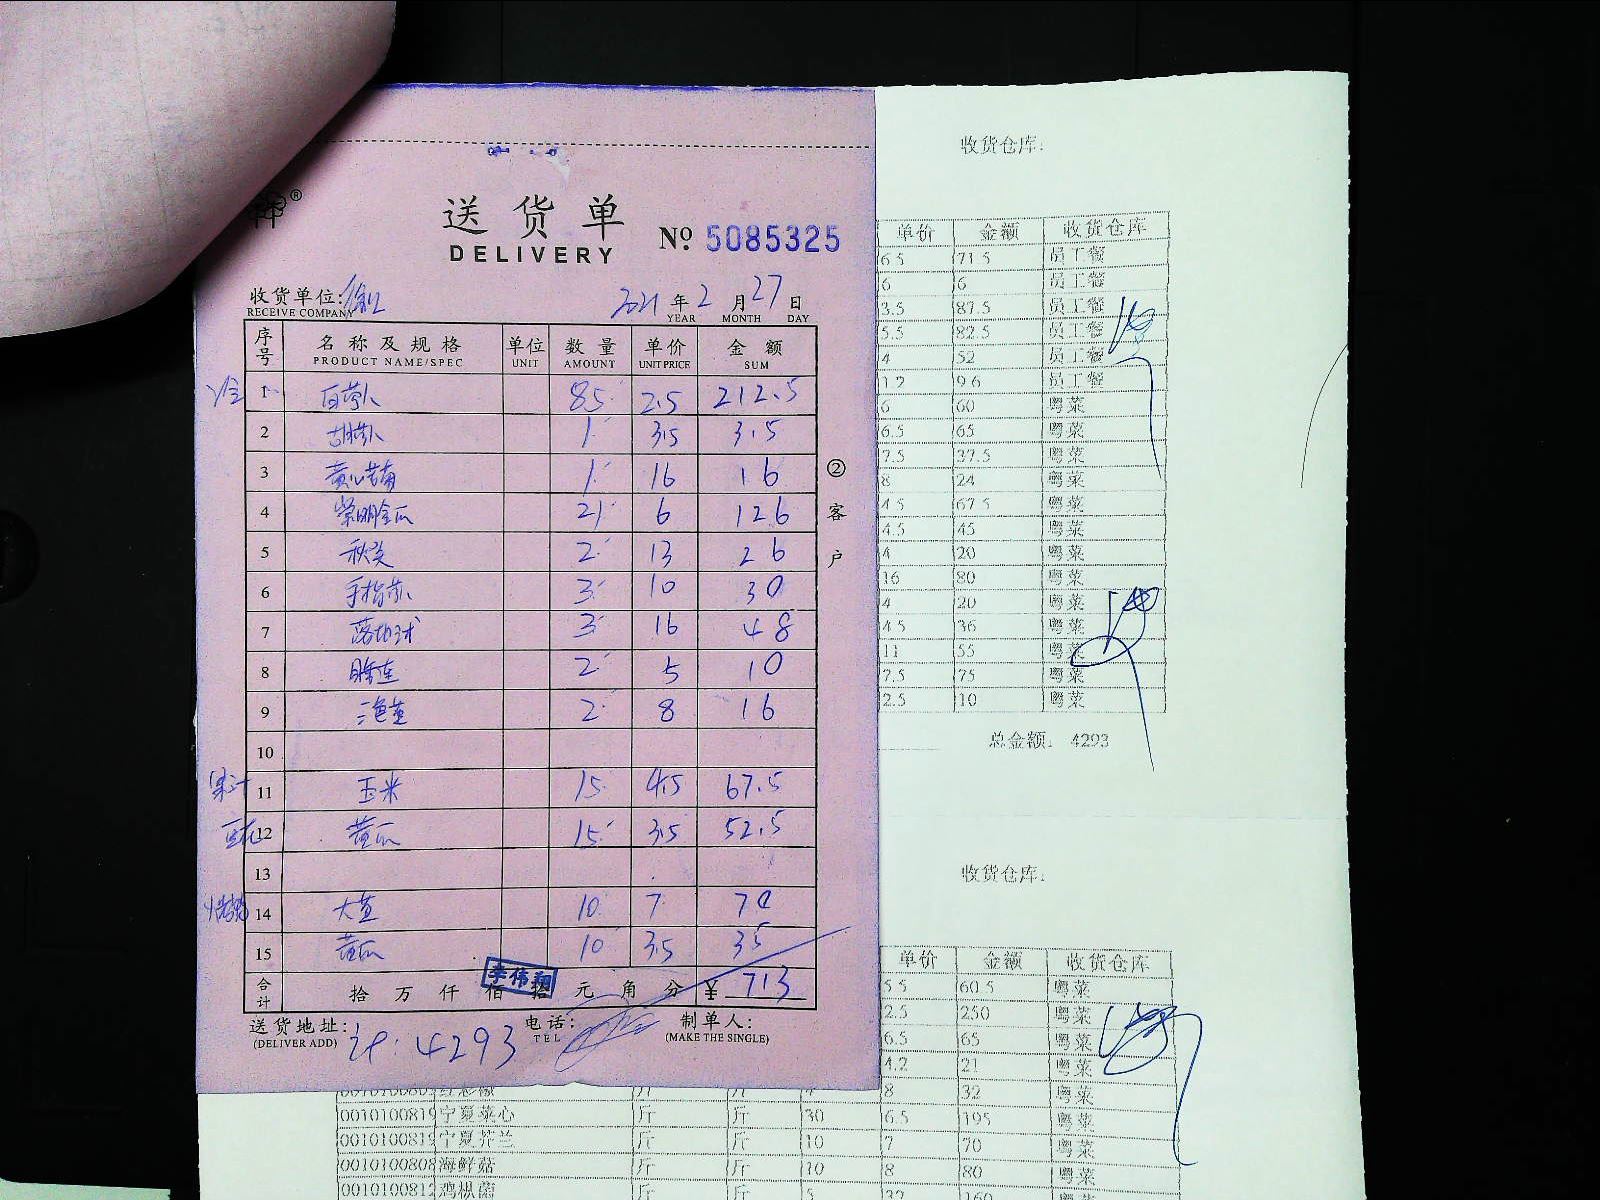 送货单
DELIVERY
№ 5085325
收货单位:
RECEIVE COMPANY
2021 年 2 月 27 日
YEAR MONTH DAY
序号 名称及规格 单位 数量 单价 金额
PRODUCT NAME/SPEC UNIT AMOUNT UNIT PRICE SUM
1 白萝卜 85 2.5 212.5
2 胡萝卜 1 3.5 3.5
3 黄心苦菊 1 16 16
4 崇明金瓜 21 6 126
5 秋葵 2 13 26
6 手指萝卜 3 10 30
7 3 16 48
8 2 5 10
9 2 8 16
10
11 玉米 15 4.5 67.5
豆花 12 黄瓜 15 3.5 52.5
13
14 大葱 10 7 70
15 黄瓜 10 3.5 35
合计 拾 万 仟 佰 拾 元 角 分 ¥ 713
李伟翔
② 客户
送货地址:
(DELIVER ADD)
电话:
TEL
制单人:
(MAKE THE SINGLE)
计: 4293
收货仓库:
单价 金额 收货仓库
6.5 71.5 员工餐
6 6 员工餐
3.5 87.5 员工餐
5.5 82.5 员工餐
4 52 员工餐
1.2 9.6 员工餐
6 60 粤菜
6.5 65 粤菜
7.5 37.5 粤菜
8 24 粤菜
4.5 67.5 粤菜
4.5 45 粤菜
4 20 粤菜
16 80 粤菜
4 20 粤菜
4.5 36 粤菜
11 55 粤菜
7.5 75 粤菜
2.5 10 粤菜
总金额: 4293
收货仓库:
单价 金额 收货仓库
5.5 60.5 粤菜
2.5 250 粤菜
6.5 65 粤菜
4.2 21 粤菜
斤 斤 4 8 32 粤菜
0010100819 宁夏菜心 斤 斤 30 6.5 195 粤菜
宁夏芥兰 斤 斤 10 7 70 粤菜
0010100808 海鲜菇 斤 斤 10 8 80 粤菜
鸡枞菌 斤 斤 5 32 160 粤菜